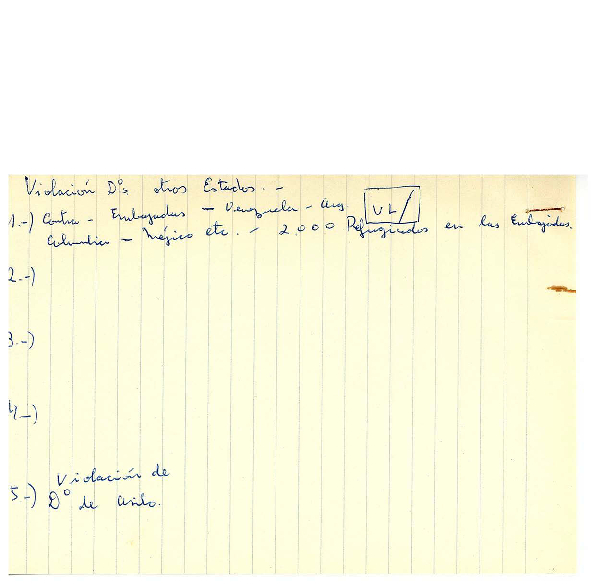 Violación Dº. otros Estados. -
1.-) Contra - Embajadas - Venezuela - Arg.
VL/
Colombia - Méjico etc. - 2.000 Refugiados en las Embajadas.
2.-)
3.-)
4-)
5-) Violación de
Dº de Asilo.